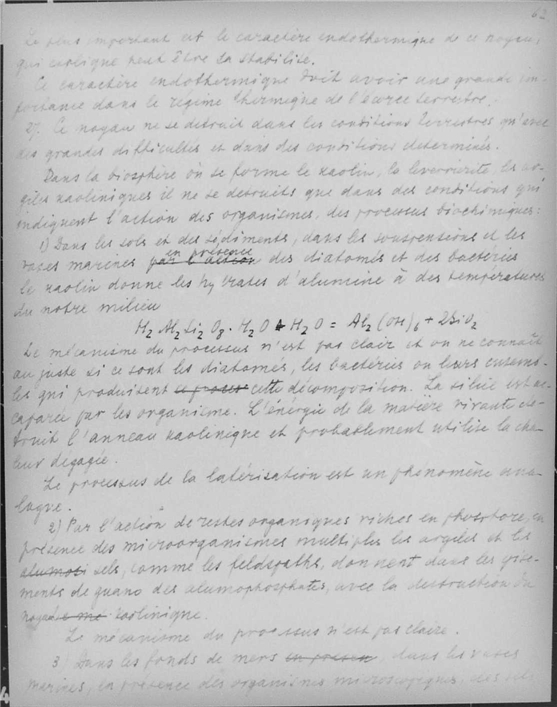 62
Le plus important est le caractère endothermique de ce noyau,
qui explique peut être sa stabilité.
Ce caractère endothermique doit avoir une grande im-
portance dans le régime thermique de l'écorce terrestre.
2). Ce noyau ne se detruit dans les conditions terrestres qu'avec
des grandes difficultés et dans des conditions determinées.
Dans la biosphère où se forme le kaolin, la leverriérite, les ar-
giles kaoliniques il ne se detruits que dans des conditions qui
indiquent l'action des organismes, des processus biochimiques:
1) Dans les sols et des sediments, dans les suspensions et les
vases marines par l'action en présence des diatomés et des bacteries
le kaolin donne les hydrates d'alumine à des températures
du notre milieu
H2 Al2 Si2 O8 · H2O + H2O = Al2 (OH)6 + 2SiO2
Le mécanisme du processus n'est pas clair et on ne connait
au juste si ce sont les diatomés, les bactéries ou leurs ensemb-
les qui produisent le proces cette décomposition. La silice est ac-
caparée par les organisme. L'énergie de la matière vivante de-
truit l'anneau kaolinique et probablement utilise la cha-
leur degagée.
Le processus de la latérisation est un phenomène ana-
logue.
2) Par l'action de restes organiques riches en phosphore, en
présence des microorganismes multiples les argiles et les
sels, comme les feldspaths, donnent dans les gise-
ments de guano des alumophosphates, avec la destruction du
noyau kaolinique.
Le mécanisme du processus n'est pas claire.
3) Dans les fonds de mers en presen, dans les vases
marines, en présence des organismes microscopiques, des